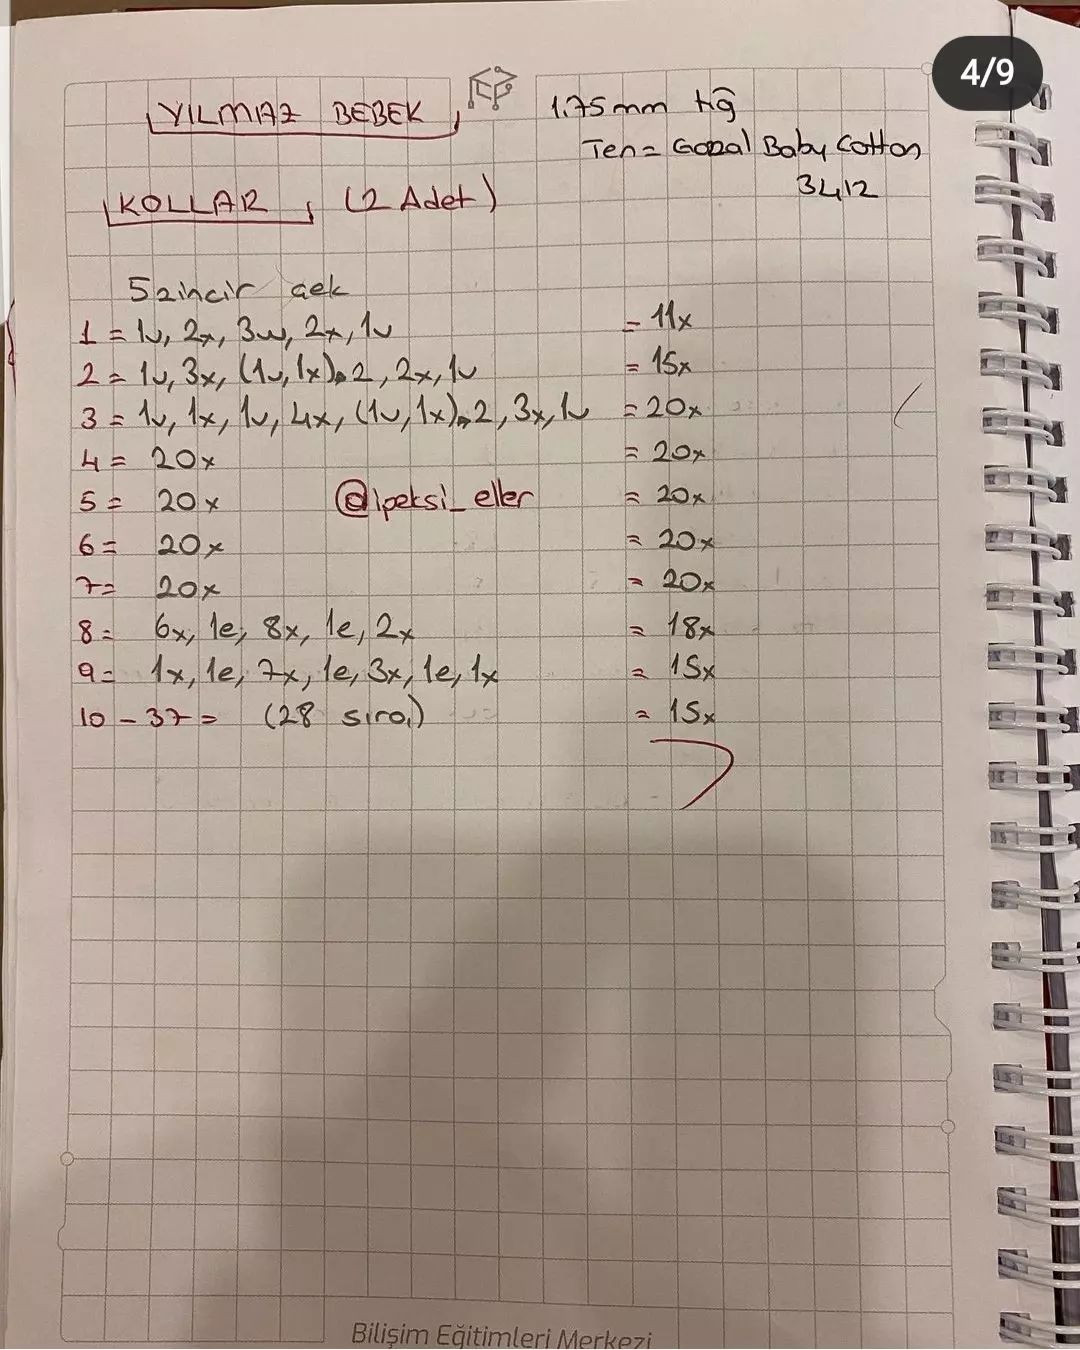 4/9
YILMAZ BEBEK
1.75 mm tığ
Ten = Gazal Baby Cotton
3412
KOLLAR (2 Adet)
5 zincir çek
1 = 1v, 2x, 3w, 2x, 1v = 11x
2 = 1v, 3x, (1v, 1x)*2, 2x, 1v = 15x
3 = 1v, 1x, 1v, 4x, (1v, 1x)*2, 3x, 1v = 20x
4 = 20x = 20x
5 = 20x @ipeksi_eller = 20x
6 = 20x = 20x
7 = 20x = 20x
8 = 6x, 1e, 8x, 1e, 2x = 18x
9 = 1x, 1e, 7x, 1e, 3x, 1e, 1x = 15x
10 - 37 = (28 sıra) = 15x
Bilişim Eğitimleri Merkezi